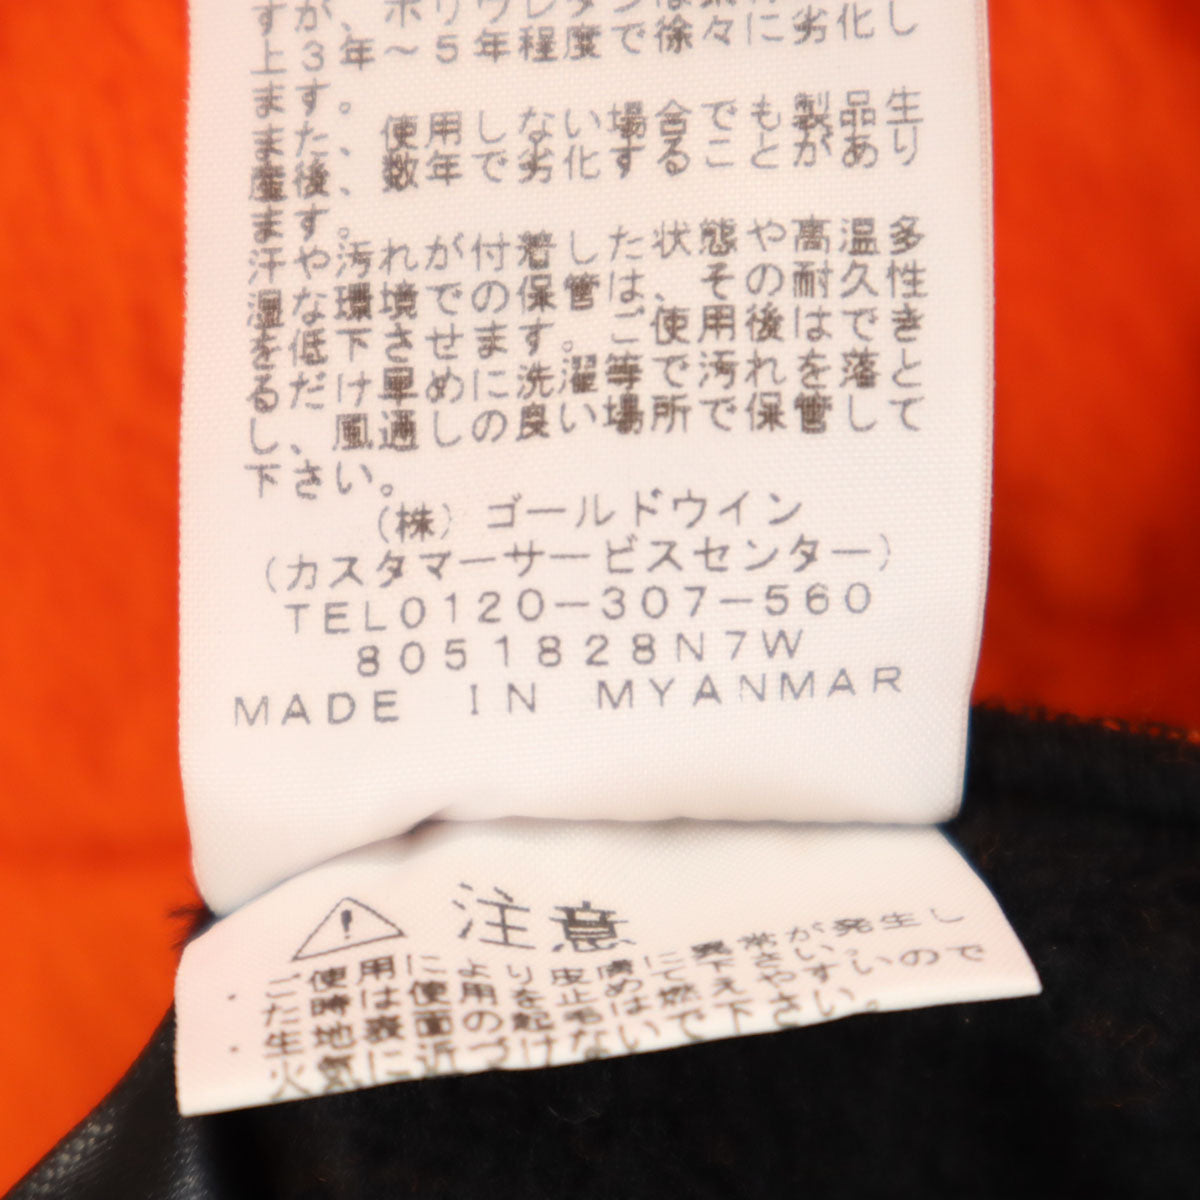 上3年～5年程度で徐々に劣化し
ます。
また、使用しない場合でも製品生
産後、数年で劣化することがあり
ます。
汗や汚れが付着した状態や高温多
湿な環境での保管は、その耐久性
を低下させます。ご使用後はでき
るだけ早めに洗濯等で汚れを落と
し、風通しの良い場所で保管して
下さい。
(株)ゴールドウイン
(カスタマーサービスセンター)
TEL0120-307-560
8051828N7W
MADE IN MYANMAR
注意
・ご使用により皮膚に異常が発生し
た時は使用を止めて下さい。
・生地裏面の起毛は燃えやすいので
火気に近づけないで下さい。